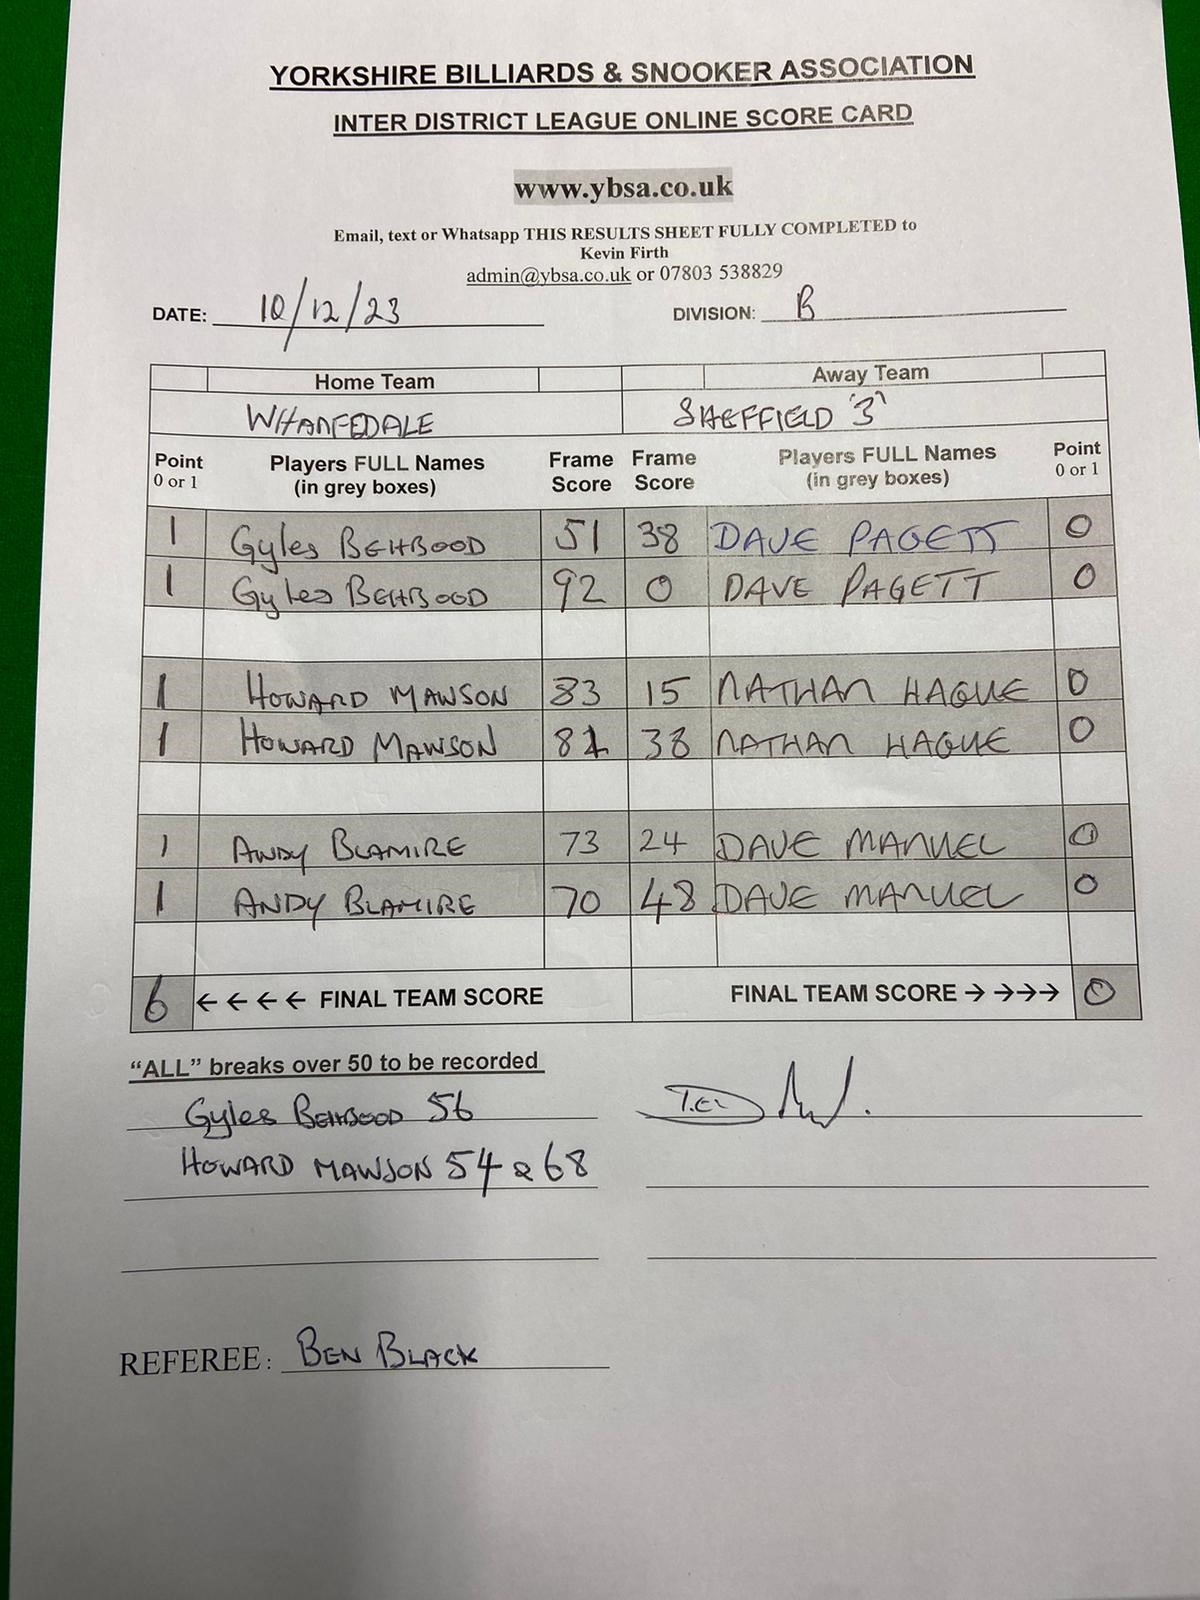 YORKSHIRE BILLIARDS & SNOOKER ASSOCIATION
INTER DISTRICT LEAGUE ONLINE SCORE CARD
www.ybsa.co.uk
Email, text or Whatsapp THIS RESULTS SHEET FULLY COMPLETED to
Kevin Firth
admin@ybsa.co.uk or 07803 538829
DATE: 10/12/23 DIVISION: B
Home Team Away Team
WHARFEDALE SHEFFIELD '3'
Point Players FULL Names Frame Frame Players FULL Names Point
0 or 1 (in grey boxes) Score Score (in grey boxes) 0 or 1
1 Gyles BEHBOOD 51 38 DAVE PAGETT 0
1 Gyles BEHBOOD 92 0 DAVE PAGETT 0
1 HOWARD MAWSON 83 15 NATHAN HAGUE 0
1 HOWARD MAWSON 81 38 NATHAN HAGUE 0
1 ANDY BLAMIRE 73 24 DAVE MANUEL 0
1 ANDY BLAMIRE 70 48 DAVE MANUEL 0
6 ← ← ← ← FINAL TEAM SCORE FINAL TEAM SCORE → →→→ 0
“ALL” breaks over 50 to be recorded
Gyles BEHBOOD 56
HOWARD MAWSON 54 & 68
REFEREE: BEN BLACK